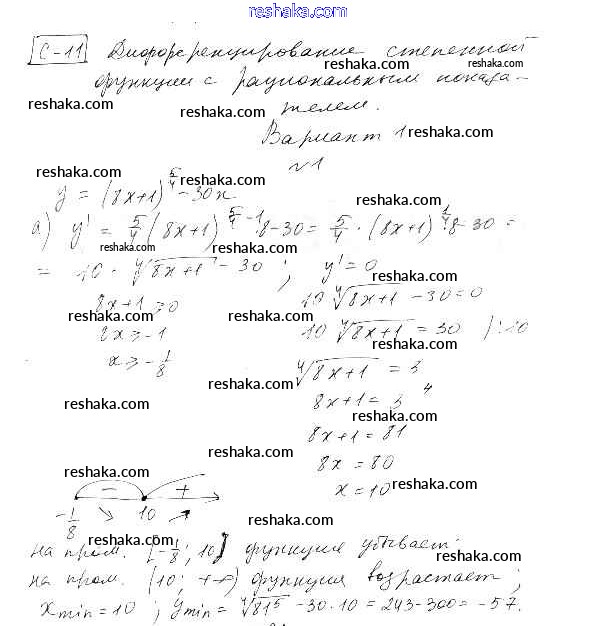 reshaka.com
С-11 Дифференцирование степенной
reshaka.com reshaka.com
функции с рациональным показа-
reshaka.com reshaka.com reshaka.com
телем.
Вариант 1 reshaka.com
№1
reshaka.com reshaka.com
y = (8x+1)^(5/4) - 30x
reshaka.com
а) y' = 5/4 (8x+1)^(5/4 - 1) · 8 - 30 = 5/4 · (8x+1)^(1/4) · 8 - 30 =
reshaka.com reshaka.com
= 10 · ∜(8x+1) - 30 ; y' = 0
reshaka.com
8x+1 ≥ 0 10 ∜(8x+1) - 30 = 0
reshaka.com reshaka.com
8x ≥ -1 10 ∜(8x+1) = 30 | :10
reshaka.com
x ≥ -1/8 ∜(8x+1) = 3
reshaka.com
8x+1 = 3^4
reshaka.com reshaka.com
8x+1 = 81
8x = 80
reshaka.com
x = 10 reshaka.com
- +
-1/8 ↘ 10 ↗
reshaka.com reshaka.com
на пром. [-1/8; 10] функция убывает
reshaka.com
на пром. (10; +∞) функция возрастает;
reshaka.com reshaka.com
xmin = 10 ; ymin = ∜81^5 - 30·10 = 243-300 = -57.
reshaka.com